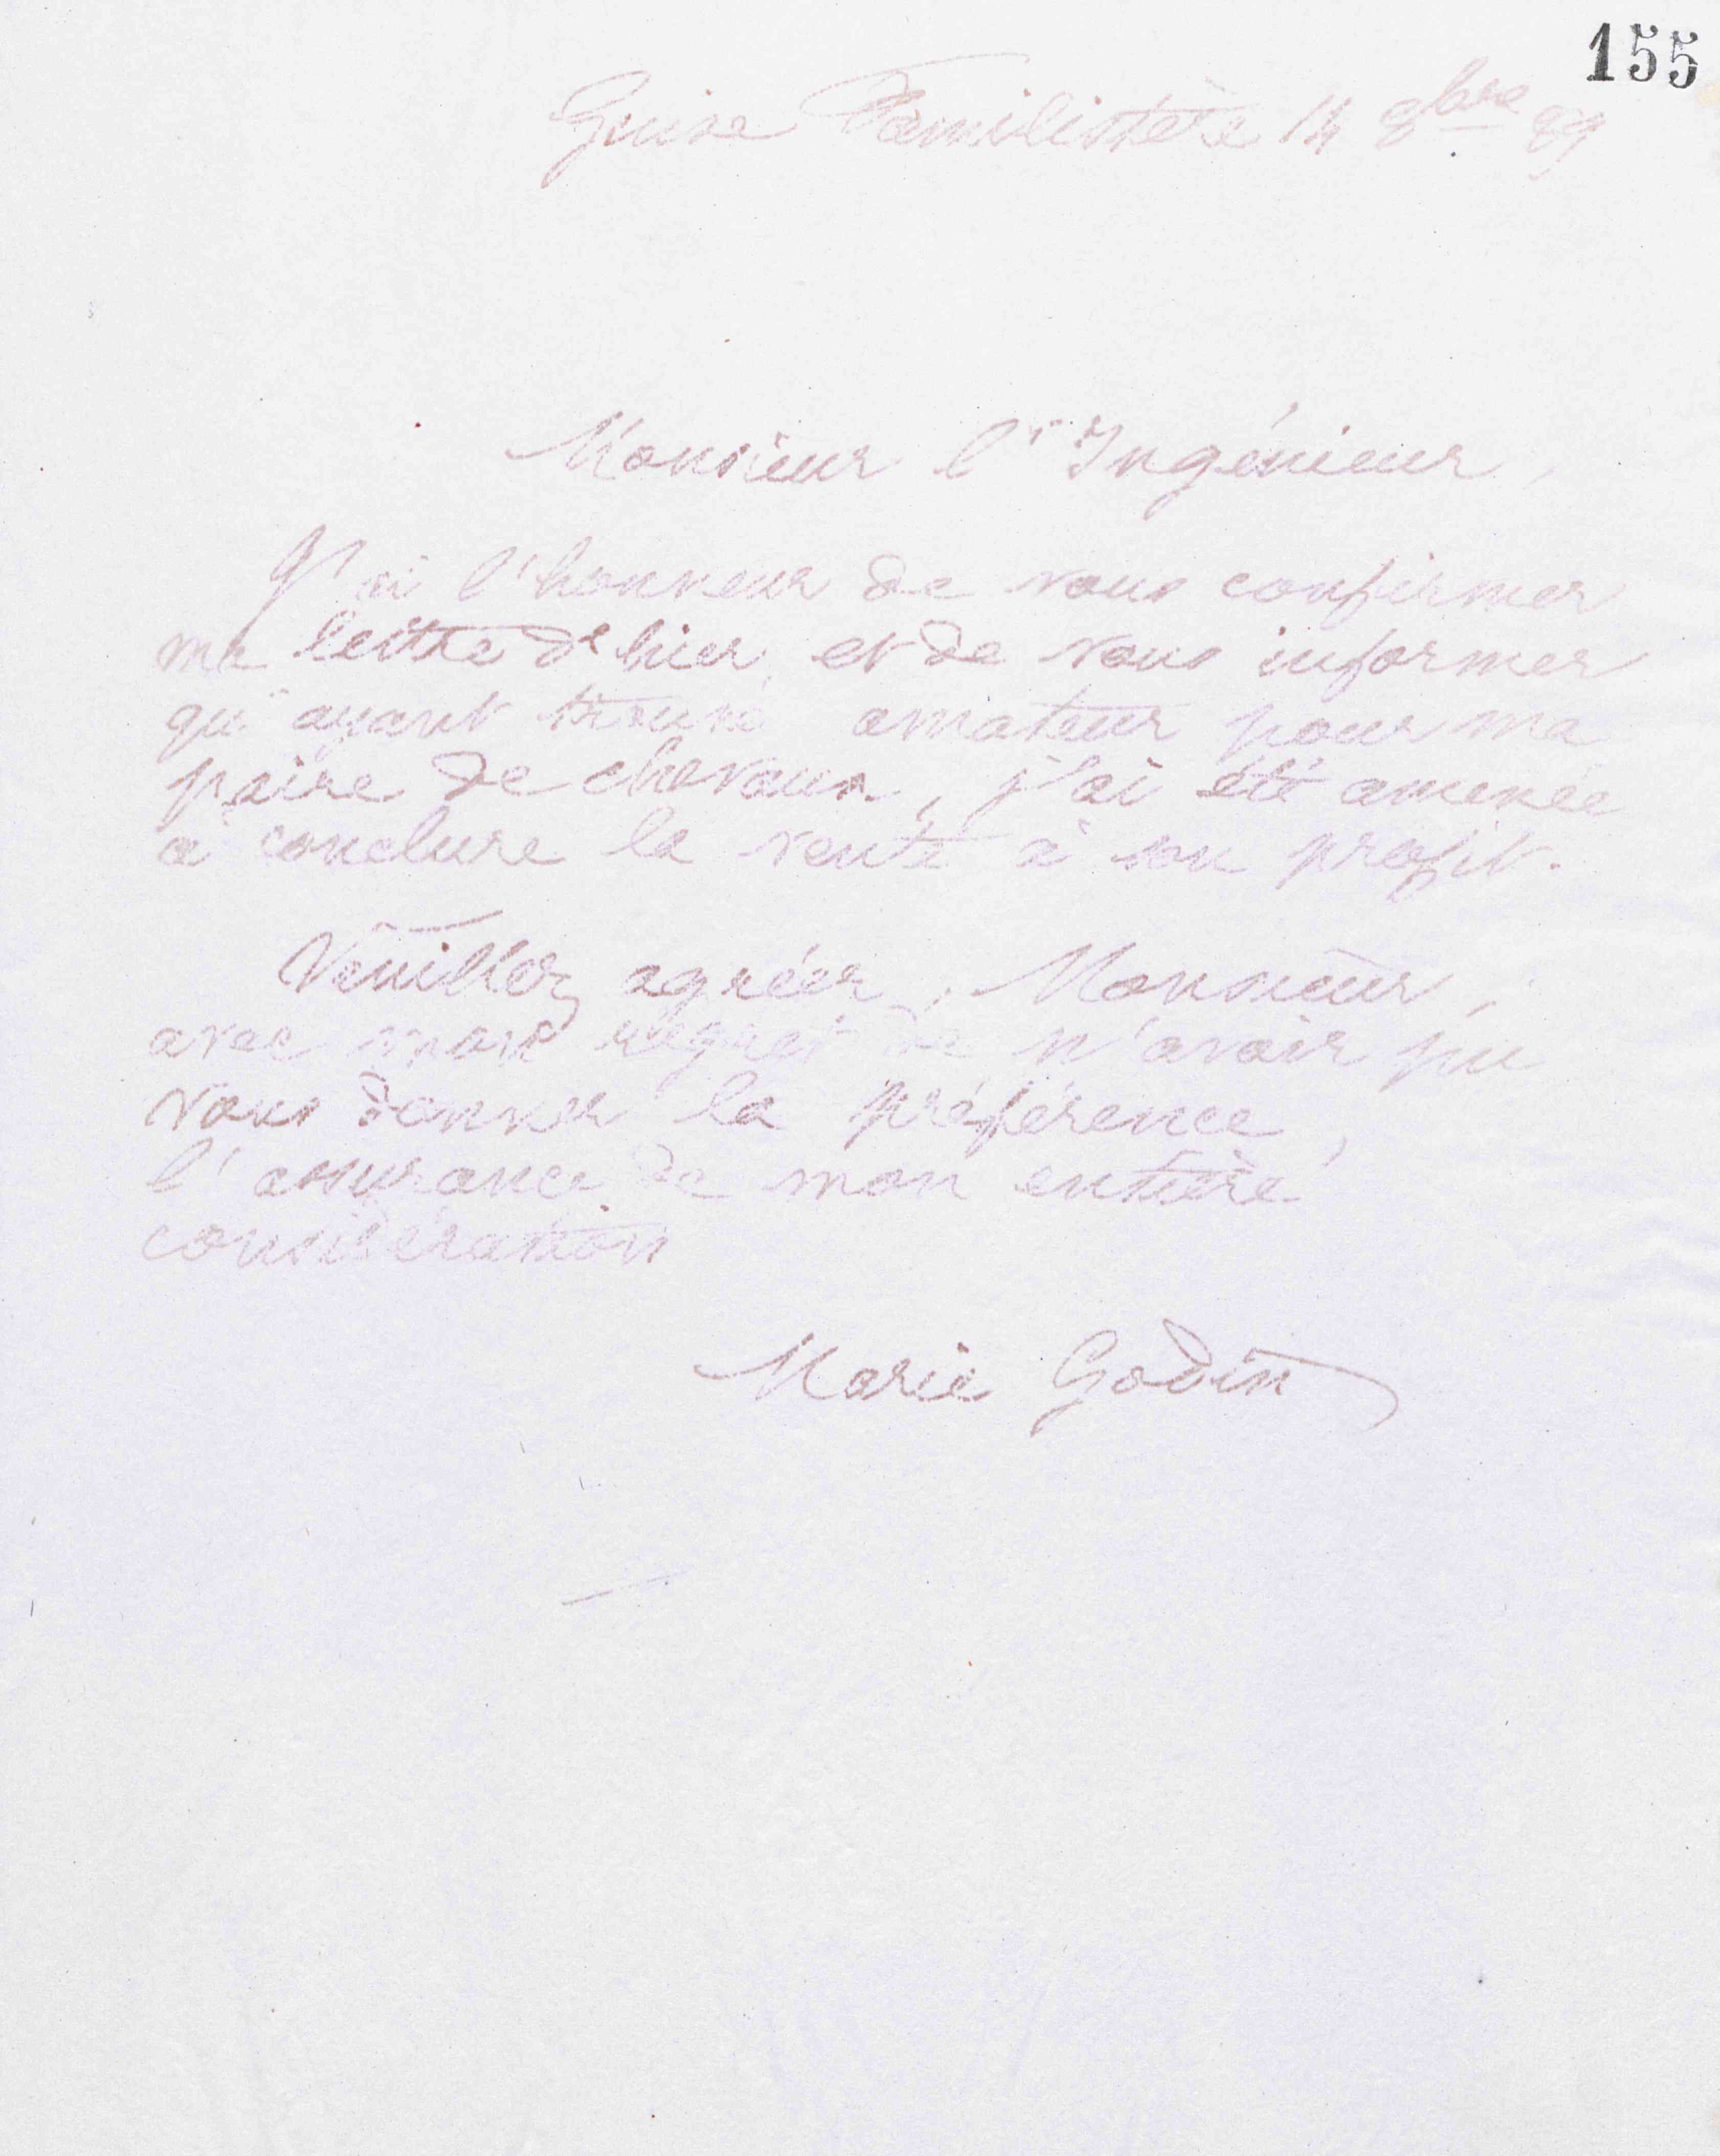 155
Guise Familistère 14 8bre 89
Monsieur l'Ingénieur,
J'ai l'honneur de vous confirmer
ma lettre d'hier, et de vous informer
qu'ayant trouvé amateur pour ma
paire de chevaux, j'ai été amenée
à conclure la vente à son profit.
Veuillez agréer, Monsieur,
avec mon regret de n'avoir pu
vous donner la préférence,
l'assurance de mon entière
considération
Marie Godin